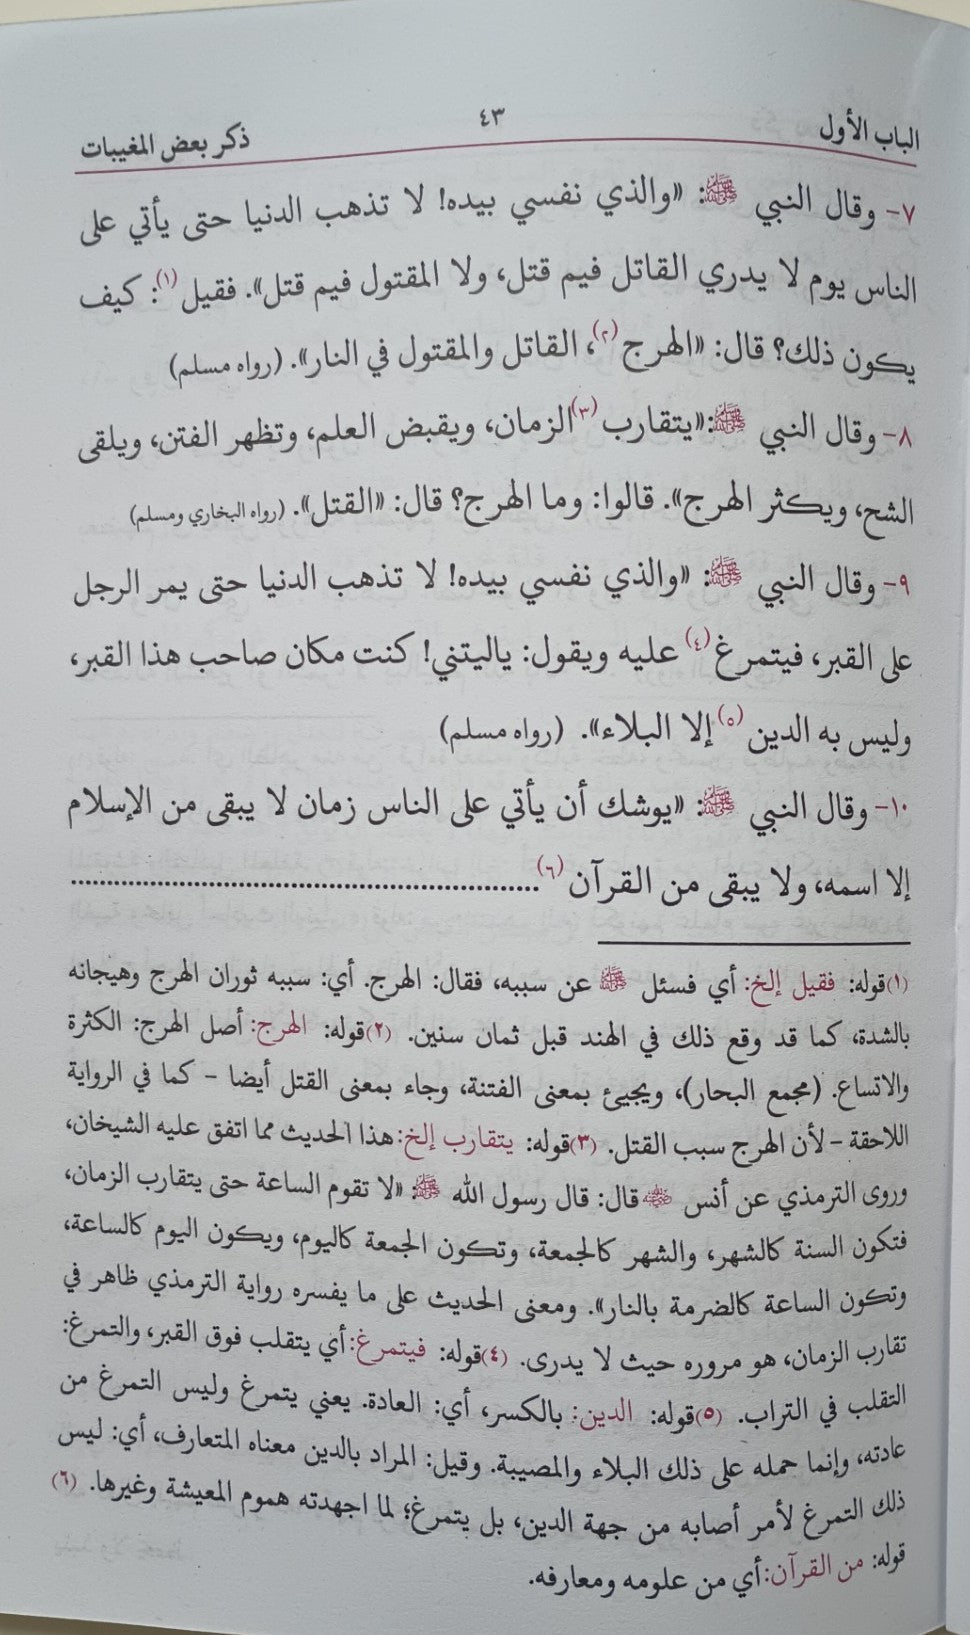 الباب الأول ٤٣ ذكر بعض المغيبات
٧- وقال النبي ﷺ: «والذي نفسي بيده! لا تذهب الدنيا حتى يأتي على
الناس يوم لا يدري القاتل فيم قتل، ولا المقتول فيم قتل». فقيل(١): كيف
يكون ذلك؟ قال: «الهرج(٢)، القاتل والمقتول في النار». (رواه مسلم)
٨- وقال النبي ﷺ: «يتقارب(٣) الزمان، ويقبض العلم، وتظهر الفتن، ويلقى
الشح، ويكثر الهرج». قالوا: وما الهرج؟ قال: «القتل». (رواه البخاري ومسلم)
٩- وقال النبي ﷺ: «والذي نفسي بيده! لا تذهب الدنيا حتى يمر الرجل
على القبر، فيتمرغ(٤) عليه ويقول: ياليتني! كنت مكان صاحب هذا القبر،
وليس به الدين(٥) إلا البلاء». (رواه مسلم)
١٠- وقال النبي ﷺ: «يوشك أن يأتي على الناس زمان لا يبقى من الإسلام
إلا اسمه، ولا يبقى من القرآن(٦)......................................................
(١)قوله: فقيل إلخ: أي فسئل ﷺ عن سببه، فقال: الهرج. أي: سببه ثوران الهرج وهيجانه
بالشدة، كما قد وقع ذلك في الهند قبل ثمان سنين. (٢)قوله: الهرج: أصل الهرج: الكثرة
والاتساع. (مجمع البحار)، ويجيئ بمعنى الفتنة، وجاء بمعنى القتل أيضا - كما في الرواية
اللاحقة - لأن الهرج سبب القتل. (٣)قوله: يتقارب إلخ: هذا الحديث مما اتفق عليه الشيخان،
وروى الترمذي عن أنس ﷺ قال: قال رسول الله ﷺ: «لا تقوم الساعة حتى يتقارب الزمان،
فتكون السنة كالشهر، والشهر كالجمعة، وتكون الجمعة كاليوم، ويكون اليوم كالساعة،
وتكون الساعة كالضرمة بالنار». ومعنى الحديث على ما يفسره رواية الترمذي ظاهر في
تقارب الزمان، هو مروره حيث لا يدرى. (٤)قوله: فيتمرغ: أي يتقلب فوق القبر، والتمرغ:
التقلب في التراب. (٥)قوله: الدين: بالكسر، أي: العادة. يعني يتمرغ وليس التمرغ من
عادته، وإنما حمله على ذلك البلاء والمصيبة. وقيل: المراد بالدين معناه المتعارف، أي: ليس
ذلك التمرغ لأمر أصابه من جهة الدين، بل يتمرغ؛ لما اجهدته هموم المعيشة وغيرها. (٦)
قوله: من القرآن: أي من علومه ومعارفه.